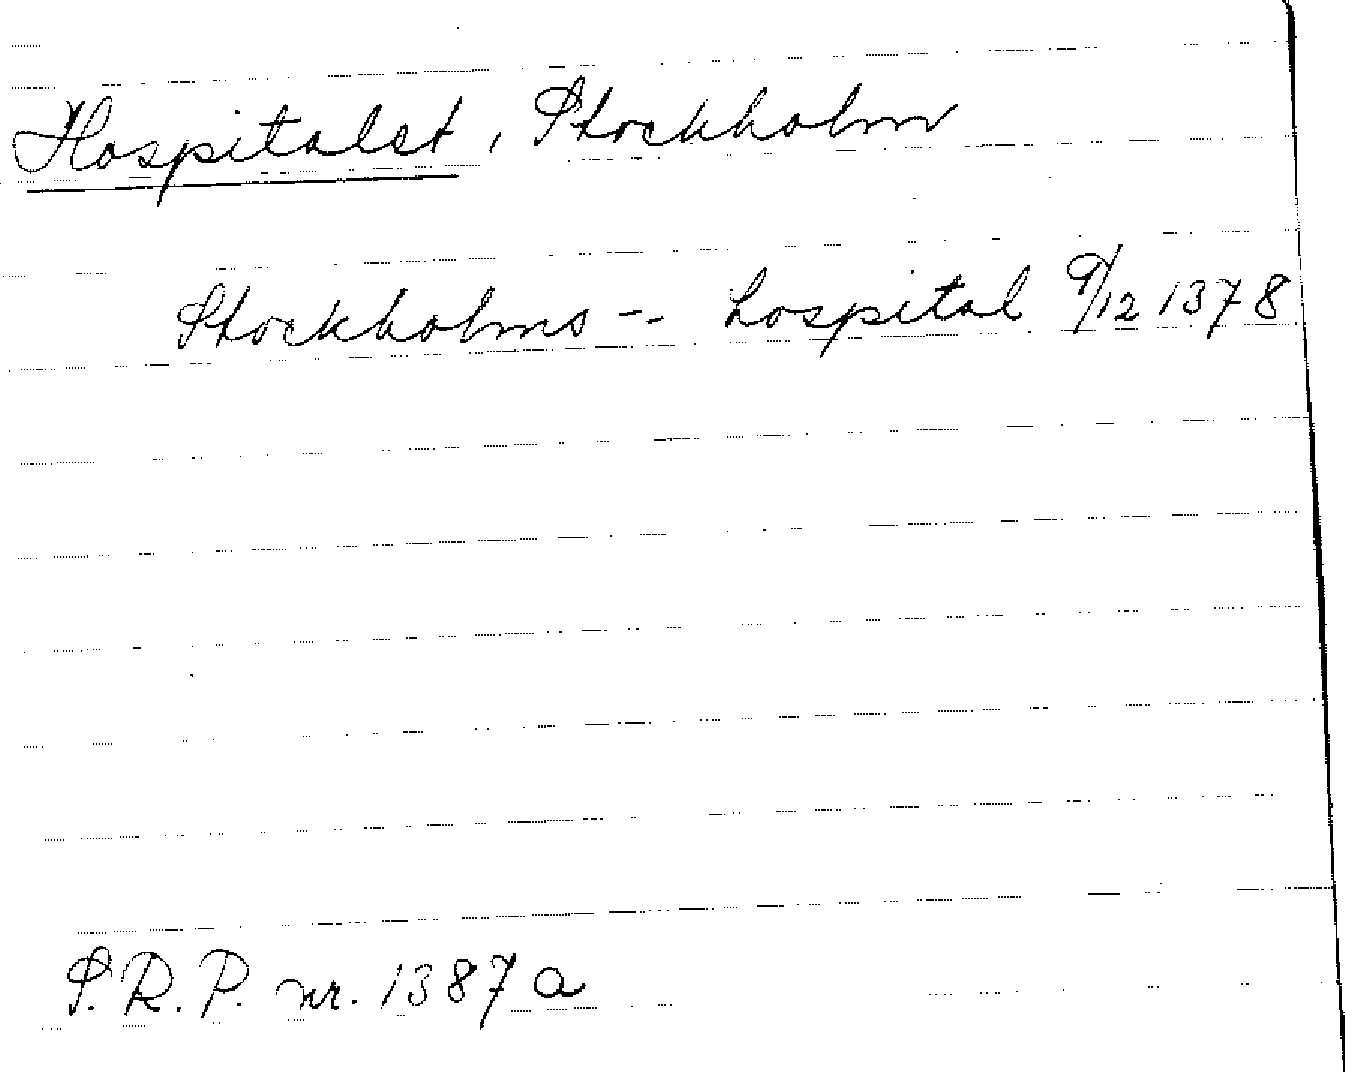 Hospitalet, Stockholm
Stockholms -- hospital 9/12 1378
S.R.P. nr. 1387 a